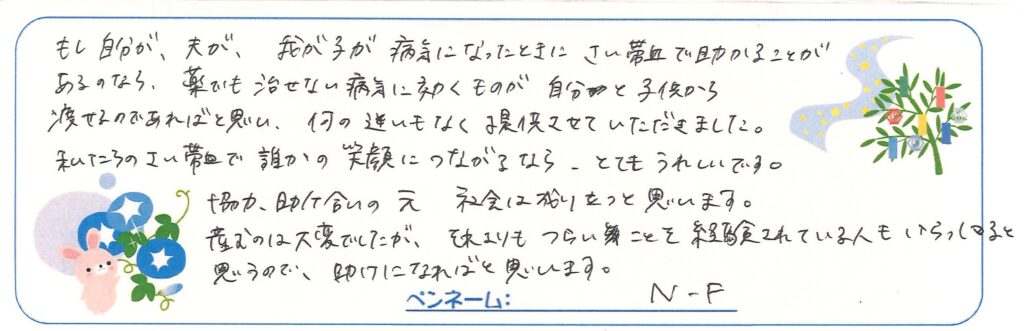 もし自分が、夫が、我が子が病気になったときにさい帯血で助かることが
あるのなら、薬でも治せない病気に効くものが自分と子供から
渡せるのであればと思い、何の迷いもなく提供させていただきました。
私たちのさい帯血で誰かの笑顔につながるなら、とてもうれしいです。
協力、助け合いの元 社会は成り立つと思います。
産むのは大変でしたが、それよりもつらいことを経験されている人もいらっしゃると
思うので、助けになればと思います。
ペンネーム: N-F